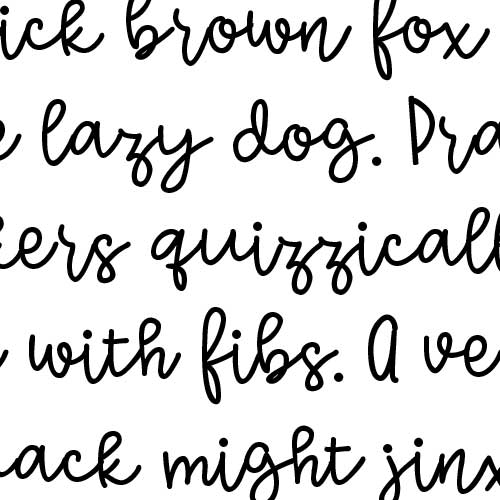 ick brown fox
e lazy dog. Pra
kers quizzicall
with fibs. A ve
ack might jinx